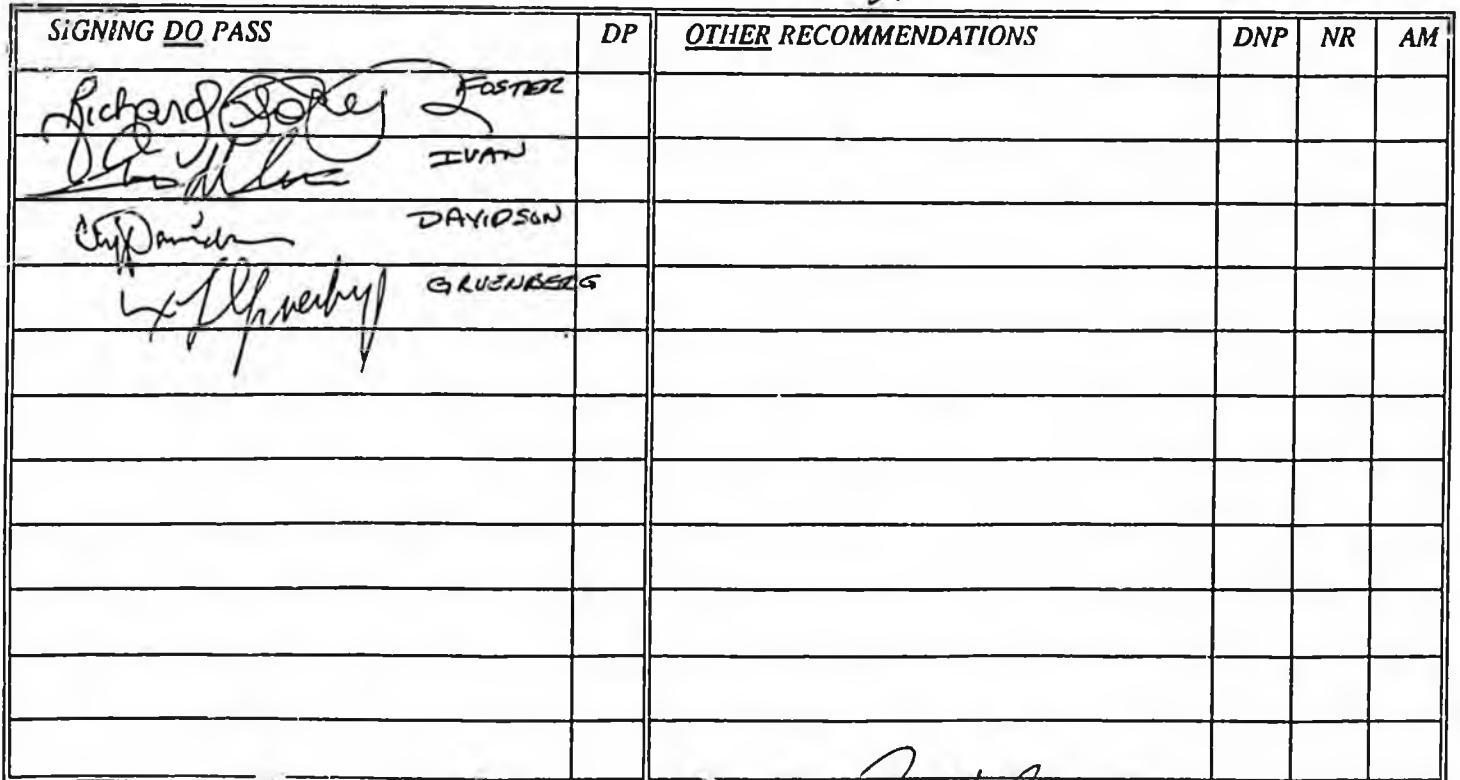 SIGNING DO PASS DP OTHER RECOMMENDATIONS DNP NR AM
Richard Foster FOSTER
IVAN
Davidson DAVIDSON
GRUENBERG